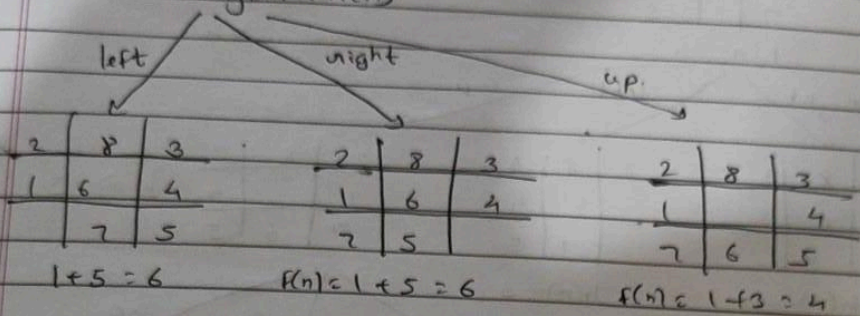 left right up.
2 8 3
1 6 4
7 5
1+5 = 6
2 8 3
1 6 4
7 5
f(n) = 1 + 5 = 6
2 8 3
1 4
7 6 5
f(n) = 1+3 = 4